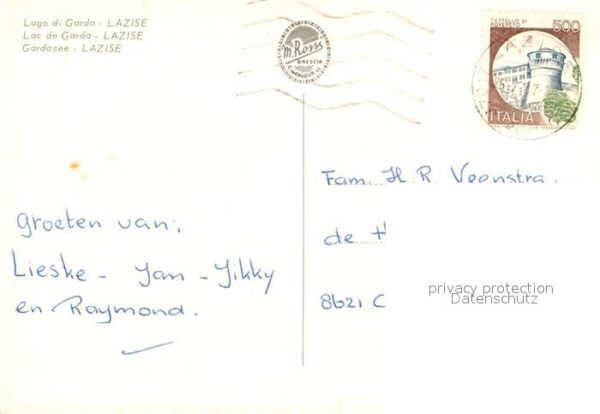 Lago di Garda - LAZISE
Lac de Garda - LAZISE
Gardasee - LAZISE
m. Rossi
BRESCIA
CASTELLO DI
ROVERETO
500
ITALIA
Fam. H R. Veenstra.
de H
8621 C
groeten van;
Lieske - Jan - Jikky
en Raymond.
privacy protection
Datenschutz